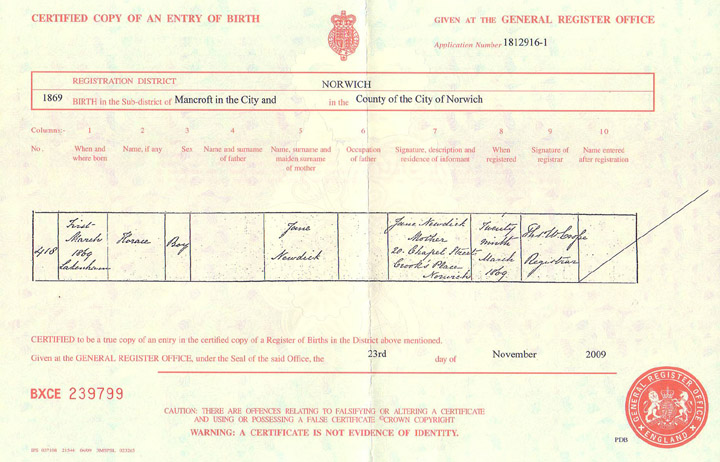 CERTIFIED COPY OF AN ENTRY OF BIRTH
GIVEN AT THE GENERAL REGISTER OFFICE
Application Number 1812916-1
REGISTRATION DISTRICT NORWICH
1869 BIRTH in the Sub-district of Mancroft in the City and in the County of the City of Norwich
Columns:- 1 2 3 4 5 6 7 8 9 10
No. When and where born Name, if any Sex Name and surname of father Name, surname and maiden surname of mother Occupation of father Signature, description and residence of informant When registered Signature of registrar Name entered after registration
418 First March 1869 Lakenham Horace Boy Jane Newdick Jane Newdick Mother 20 Chapel Street Crook's Place Norwich Twenty ninth March 1869 Registrar
CERTIFIED to be a true copy of an entry in the certified copy of a Register of Births in the District above mentioned.
Given at the GENERAL REGISTER OFFICE, under the Seal of the said Office, the 23rd day of November 2009
BXCE 239799
CAUTION: THERE ARE OFFENCES RELATING TO FALSIFYING OR ALTERING A CERTIFICATE
AND USING OR POSSESSING A FALSE CERTIFICATE ©CROWN COPYRIGHT
WARNING: A CERTIFICATE IS NOT EVIDENCE OF IDENTITY.
GENERAL REGISTER OFFICE
ENGLAND
PDB